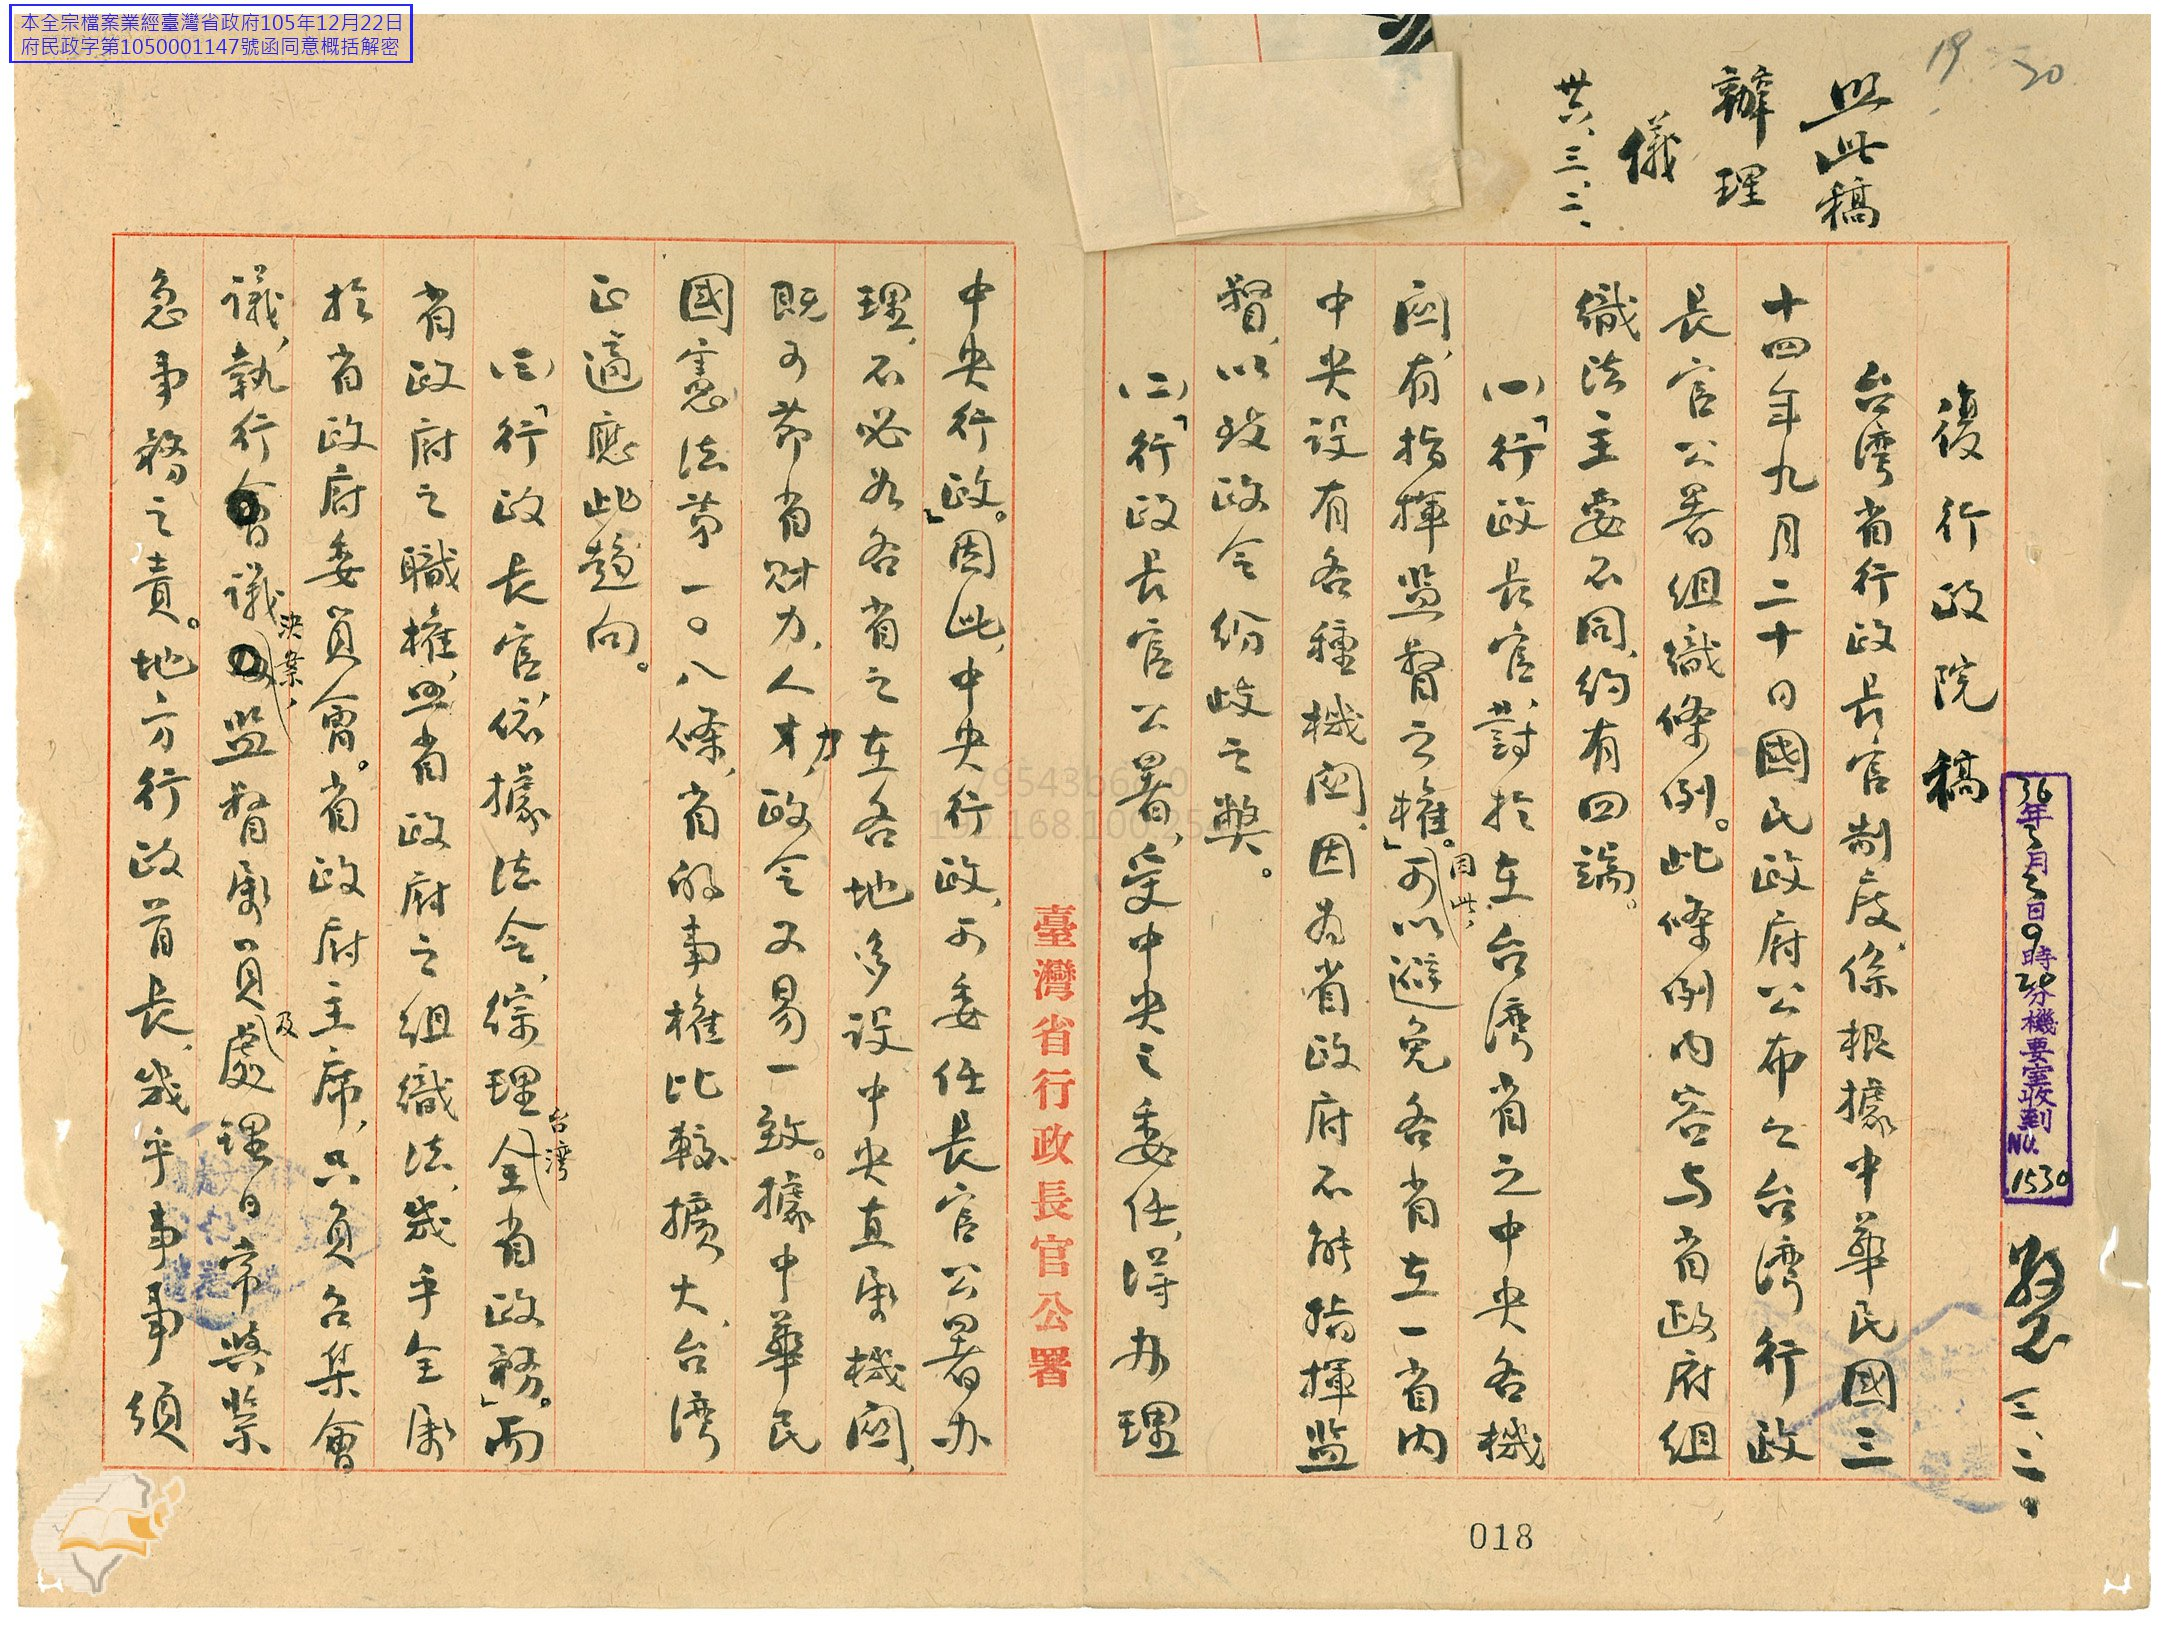 本全宗檔案業經臺灣省政府105年12月22日
府民政字第1050001147號函同意概括解密
19 20
照此稿
辦理
儀
卅六、三、二、
復行政院稿
台湾省行政長官制度、係根據中華民國三
十四年九月二十日國民政府公布之台湾行政
長官公署組織條例。此條例內容与省政府組
織法主要不同、約有四端。
(一)「行政長官、對於在台湾省之中央各機
関、有指揮監督之權」。因此、可以避免各省在一省内
中央設有各種機関、因為省政府不能指揮監
督、以致政令紛歧之弊。
(二)「行政長官公署、受中央之委任、得办理
中央行政。」因此、中央行政、可委任長官公署办
理、不必如各省之在各地多設中央直属機関、
既可節省財力、人力、政令又易一致。據中華民
國憲法第一〇八條、省的事權比較擴大、台湾
正適應此趨向。
(三)「行政長官、依據法令、綜理台湾全省政務」。而
省政府之職權、照省政府之組織法、幾乎全属
於省政府委員會。省政府主席、只負召集會
議、執行會議決案、監督属員及處理日常與紧
急事務之責。地方行政首長、幾乎事事須
臺灣省行政長官公署
36年3月2日9時20分機要室收到
No. 1530
三、二、
018